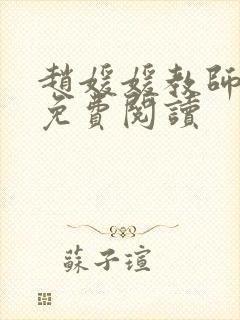 趙媛媛教師
免費閱讀
蘇子瑄